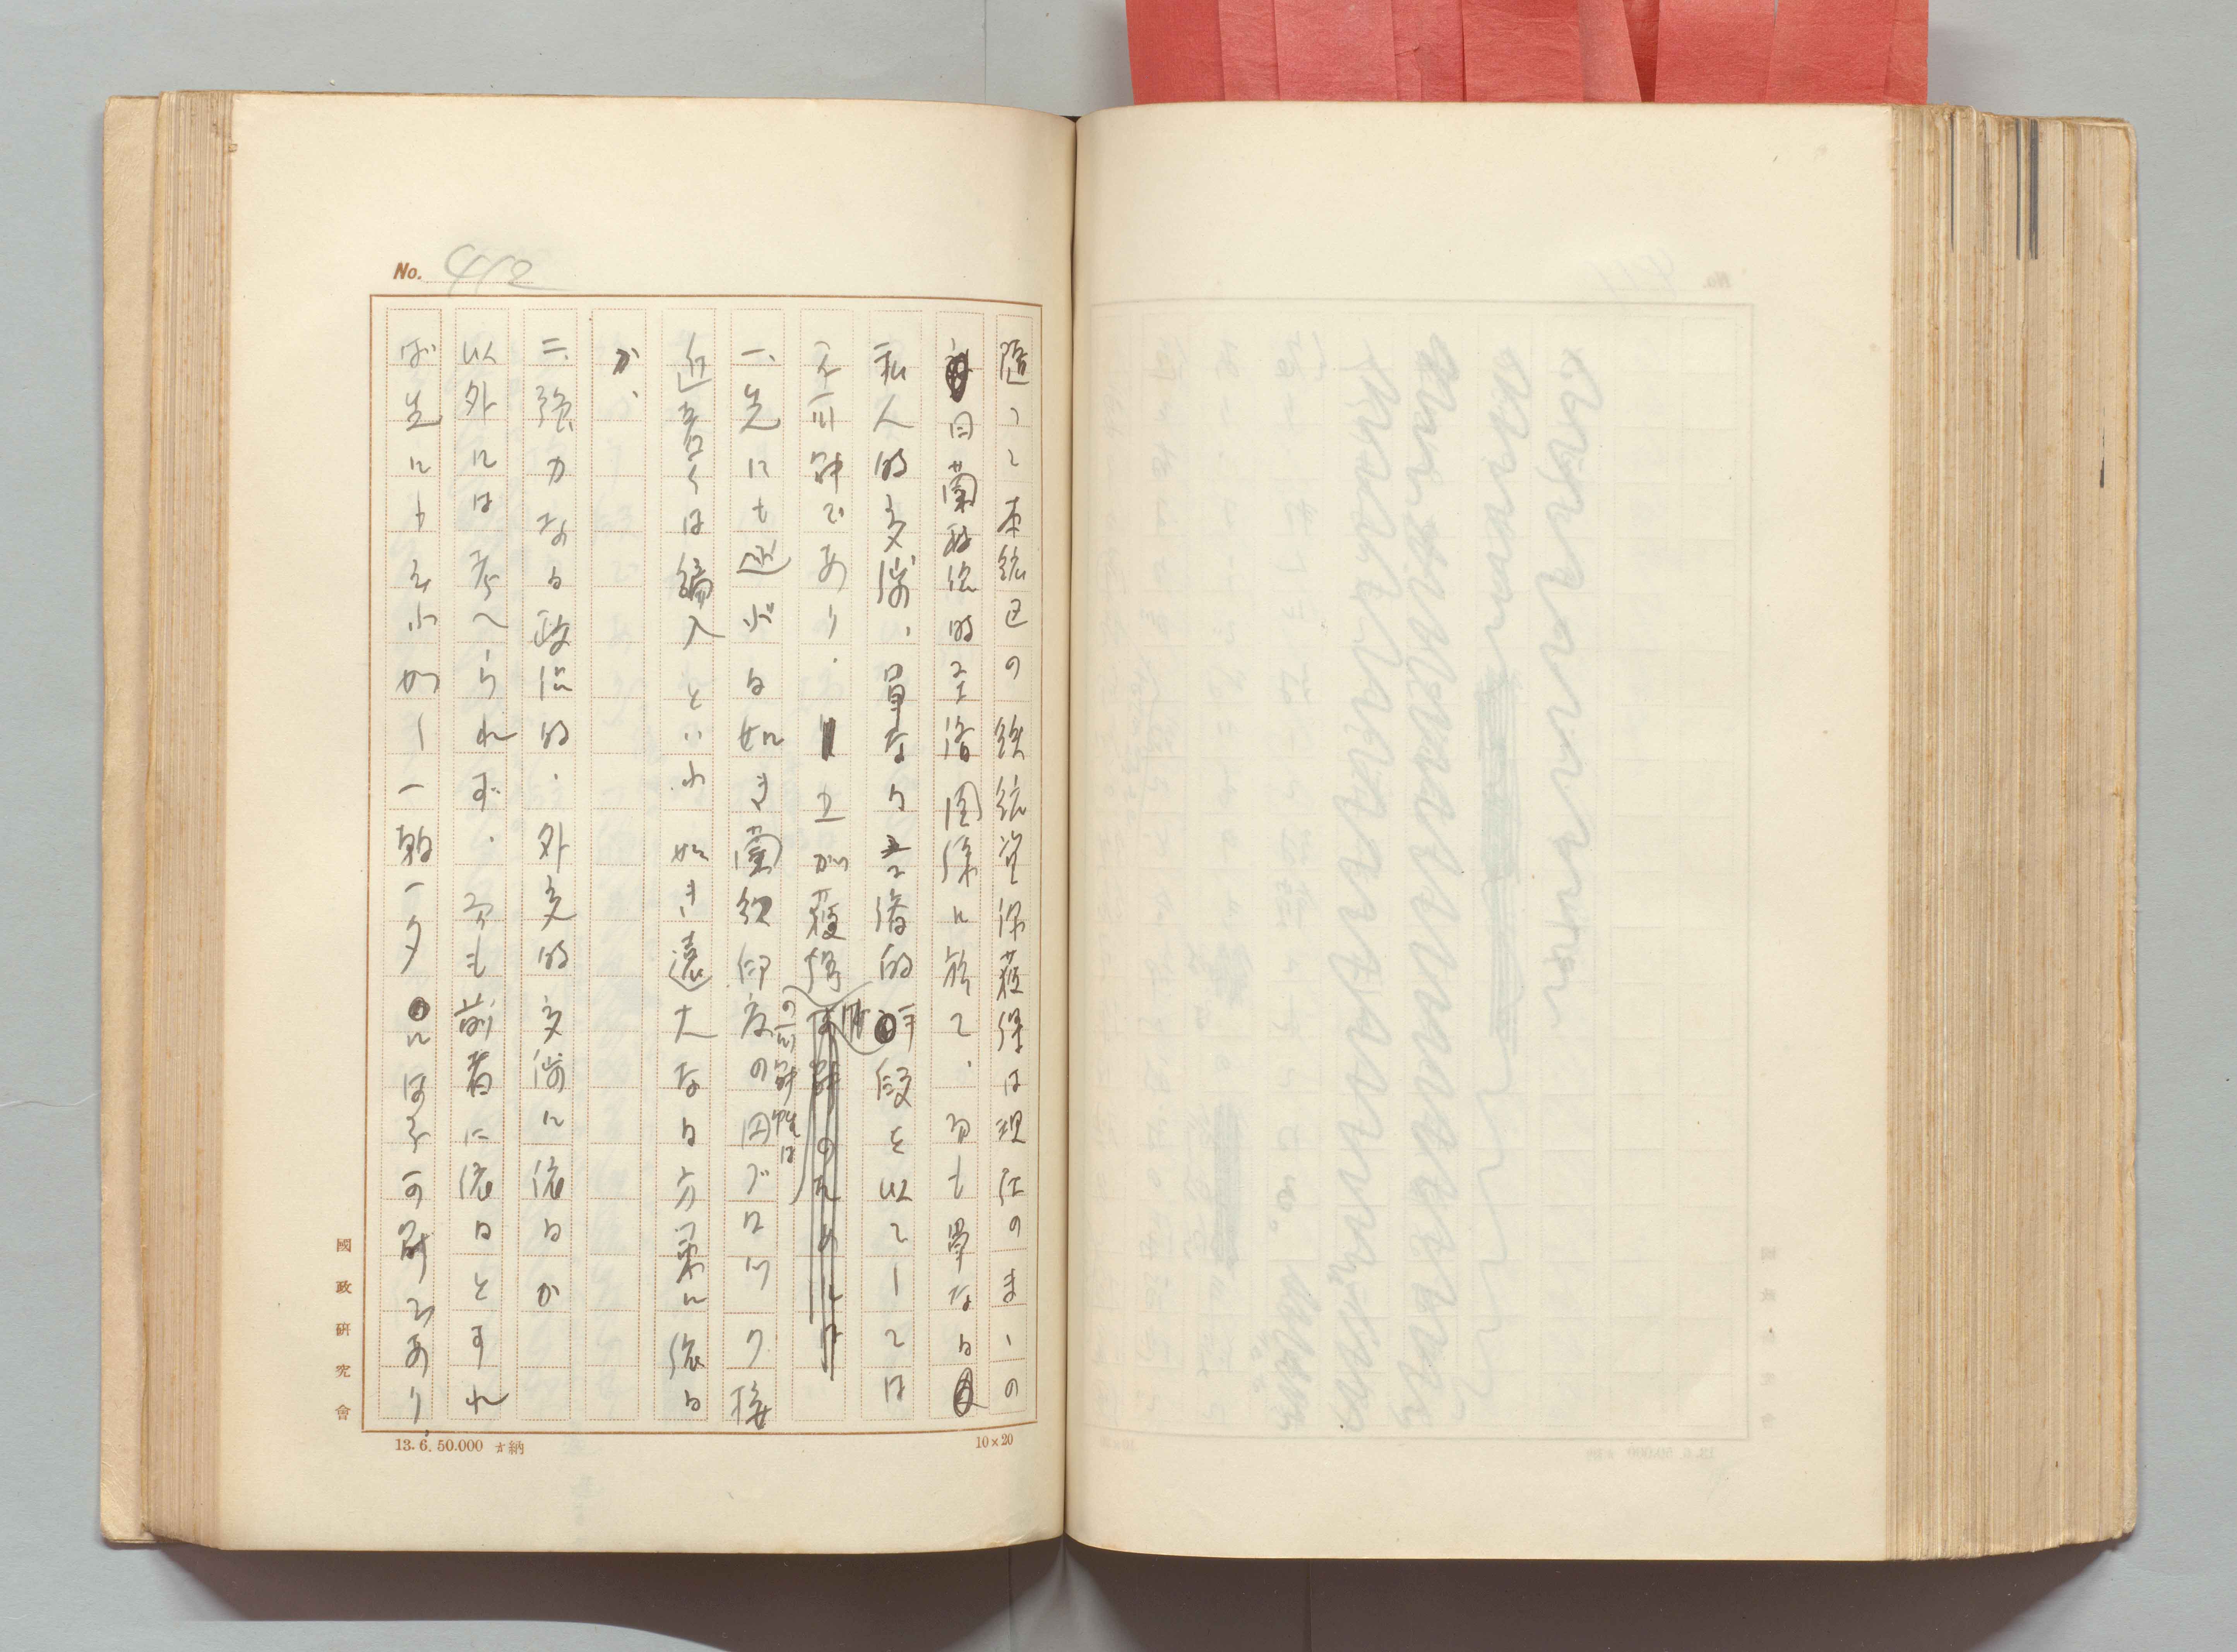 No. 412
随つて本鉱区の鉄鉱獲得は現在のまゝの
日蘭政治的経済関係に於て、而も単なる
私人的交渉、単なる経済的手段を以てしては
不可能であり、之が獲得の可能性は
一、先にも述ぶる如き蘭領印度の円ブロック接
近若くは編入といふ如き遠大なる方策に依る
か、
二、強力なる政治的、外交的交渉に依るか
以外には考へられず、而も前者に依るとすれ
ば先にも云ふ一朝一夕には不可能であり、
國政研究會
13.6.50.000 納
10×20